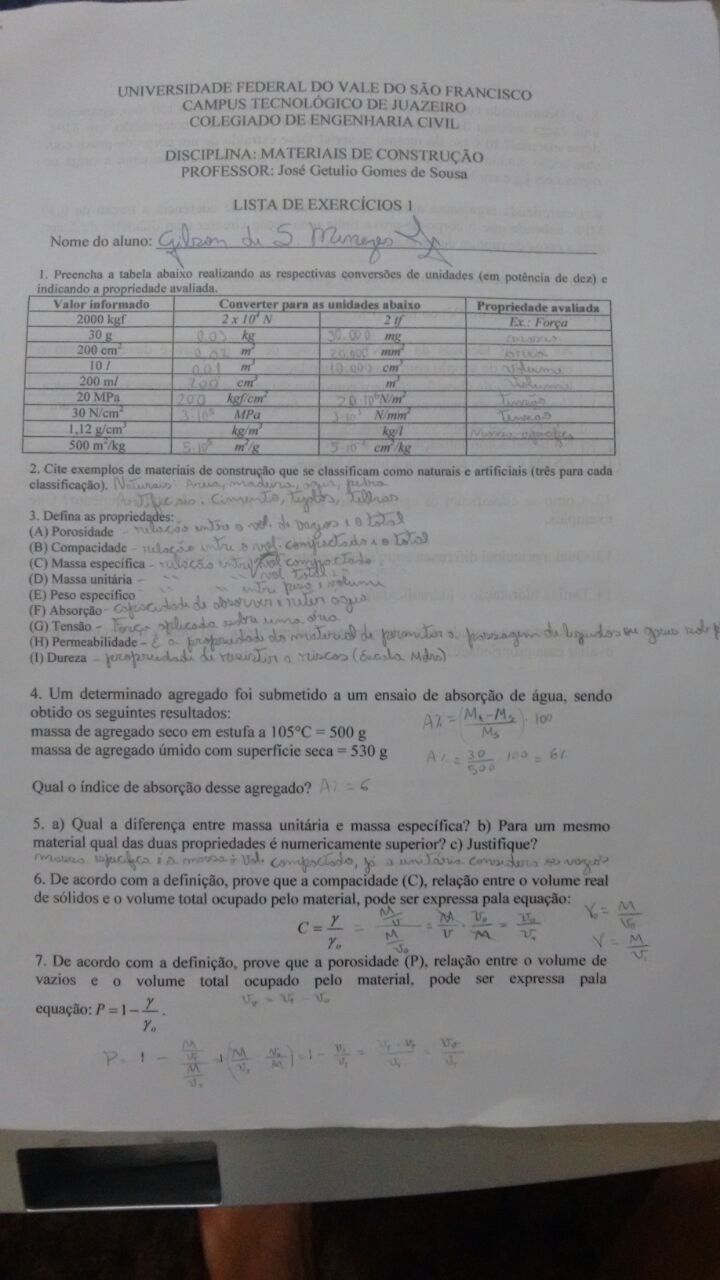 UNIVERSIDADE FEDERAL DO VALE DO SÃO FRANCISCO
CAMPUS TECNOLÓGICO DE JUAZEIRO
COLEGIADO DE ENGENHARIA CIVIL
DISCIPLINA: MATERIAIS DE CONSTRUÇÃO
PROFESSOR: José Getulio Gomes de Sousa
LISTA DE EXERCÍCIOS 1
Nome do aluno: Gilson de S Menezes
1. Preencha a tabela abaixo realizando as respectivas conversões de unidades (em potência de dez) e
indicando a propriedade avaliada.
Valor informado Converter para as unidades abaixo Propriedade avaliada
2000 kgf 2 x 10⁴ N 2 tf Ex.: Força
30 g 0,03 kg 30.000 mg massa
200 cm² 0,02 m² 20.000 mm² área
10 l 0,01 m³ 10.000 cm³ volume
200 ml 200 cm³ m³ volume
20 MPa 200 kgf/cm² 20·10⁶ N/m² tensão
30 N/cm² MPa N/mm² tensão
1,12 g/cm³ kg/m³ kg/l massa específica
500 m²/kg m²/g cm²/kg
2. Cite exemplos de materiais de construção que se classificam como naturais e artificiais (três para cada
classificação). Naturais: Areia, madeira, água, pedra
Artificiais: Cimento, tijolos, telhas
3. Defina as propriedades:
(A) Porosidade - relação entre o vol. de vazios e o total
(B) Compacidade - relação entre o vol. compactado e o total
(C) Massa específica - relação entre vol compactado
(D) Massa unitária - " " vol total
(E) Peso específico " " entre peso e volume
(F) Absorção - capacidade de absorver e reter agua
(G) Tensão - Força aplicada sobre uma área
(H) Permeabilidade - É a propriedade do material de permitir a passagem de liquidos ou gases sob p
(I) Dureza - propriedade de resistir a riscos (Escala Mohs)
4. Um determinado agregado foi submetido a um ensaio de absorção de água, sendo
obtido os seguintes resultados:
massa de agregado seco em estufa a 105°C = 500 g
massa de agregado úmido com superfície seca = 530 g
A% = (Mh - Ms / Ms) · 100
A% = 30/500 · 100 = 6%
Qual o índice de absorção desse agregado? A% = 6
5. a) Qual a diferença entre massa unitária e massa específica? b) Para um mesmo
material qual das duas propriedades é numericamente superior? c) Justifique?
massa especifica é a massa ÷ Vol. compactado, já a unitária considera os vazios
6. De acordo com a definição, prove que a compacidade (C), relação entre o volume real
de sólidos e o volume total ocupado pelo material, pode ser expressa pala equação:
C = γ/γₒ
7. De acordo com a definição, prove que a porosidade (P), relação entre o volume de
vazios e o volume total ocupado pelo material, pode ser expressa pala
equação: P = 1 - γ/γₒ.